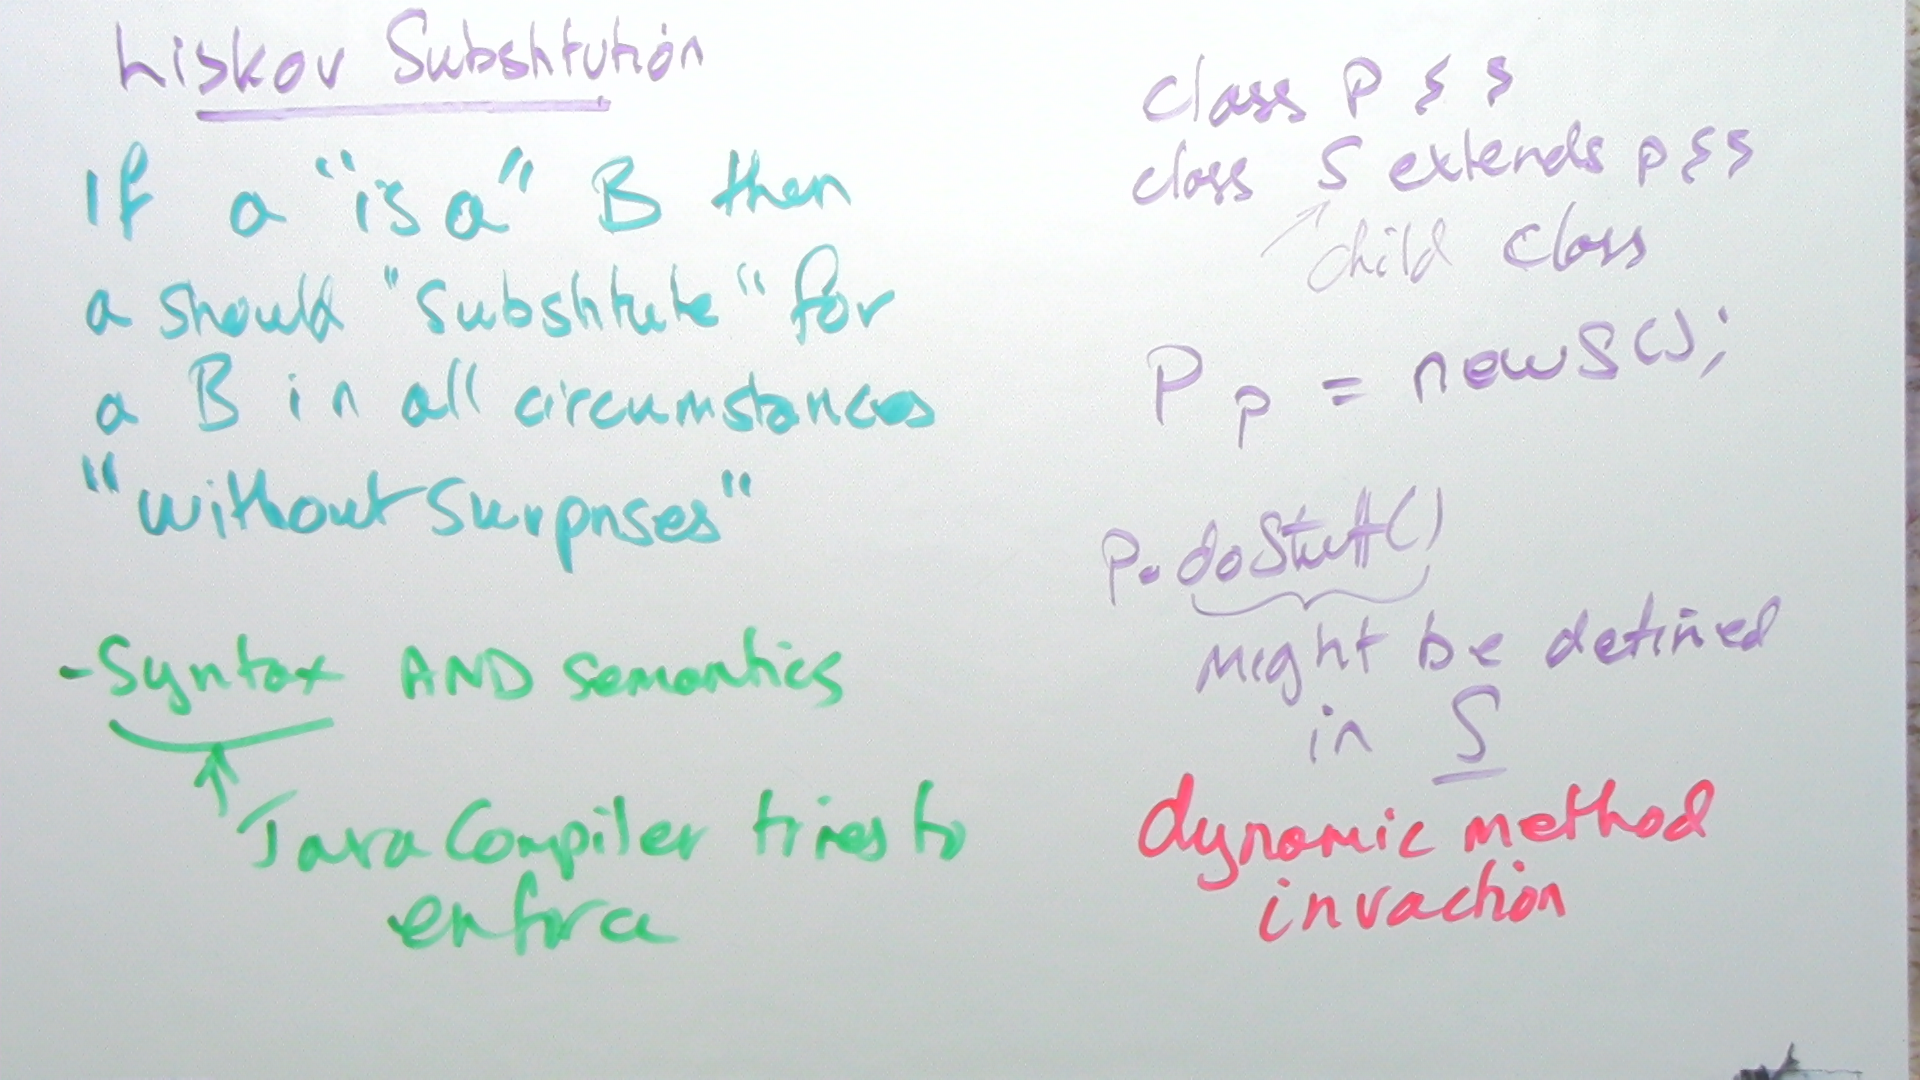 Liskov Substitution
If a "is a" B then
a should "substitute" for
a B in all circumstances
"without surprises"
- Syntax AND semantics
Java Compiler tries to
enforce
class P { }
class S extends P { }
child class
P p = new S();
p.doStuff()
might be defined
in S
dynamic method
invaction